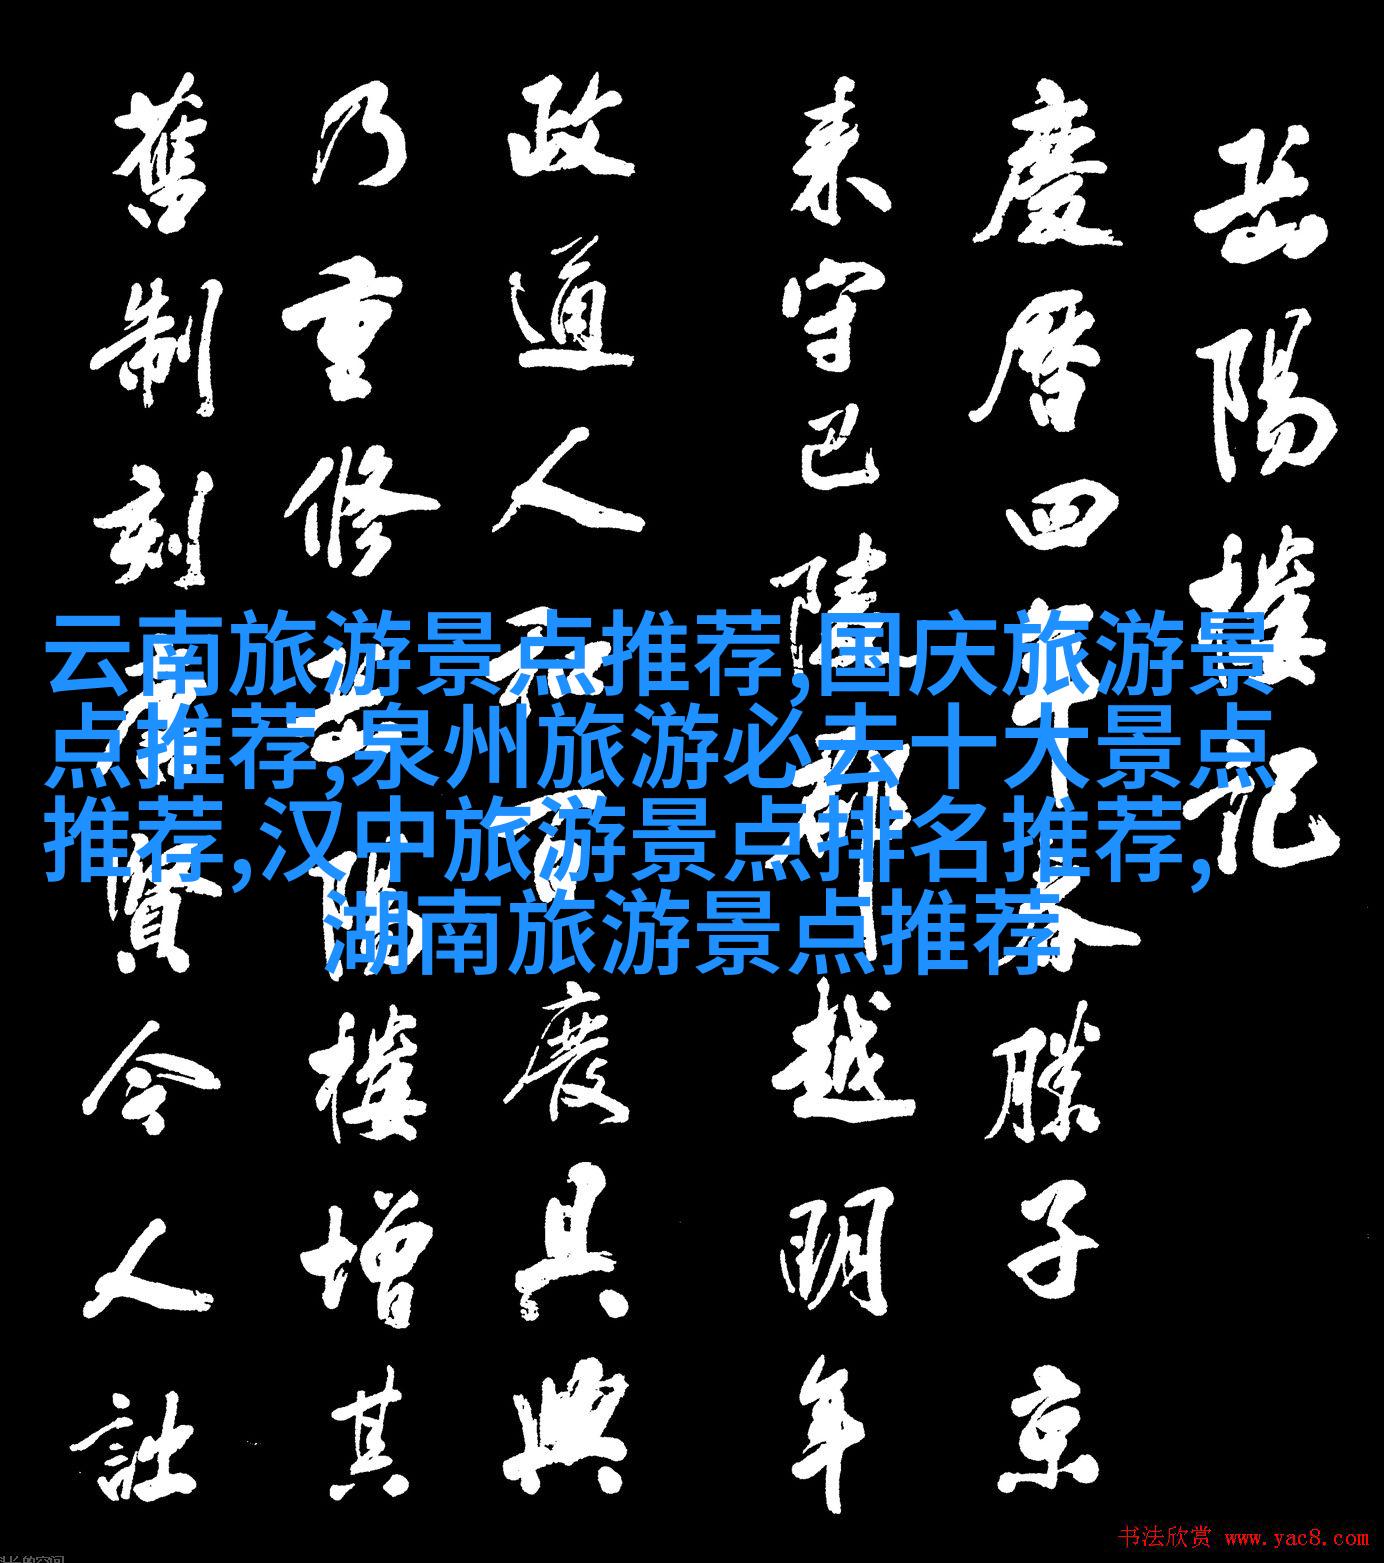 岳陽樓記
慶曆四年春滕子京
来守巴陵郡越明年
政通人和百廢具興
乃重修岳陽樓增其
舊制刻唐賢今人詩
云南旅游景点推荐,国庆旅游景
点推荐,泉州旅游必去十大景点
推荐,汉中旅游景点排名推荐,
湖南旅游景点推荐
书法欣赏 www.yac8.com